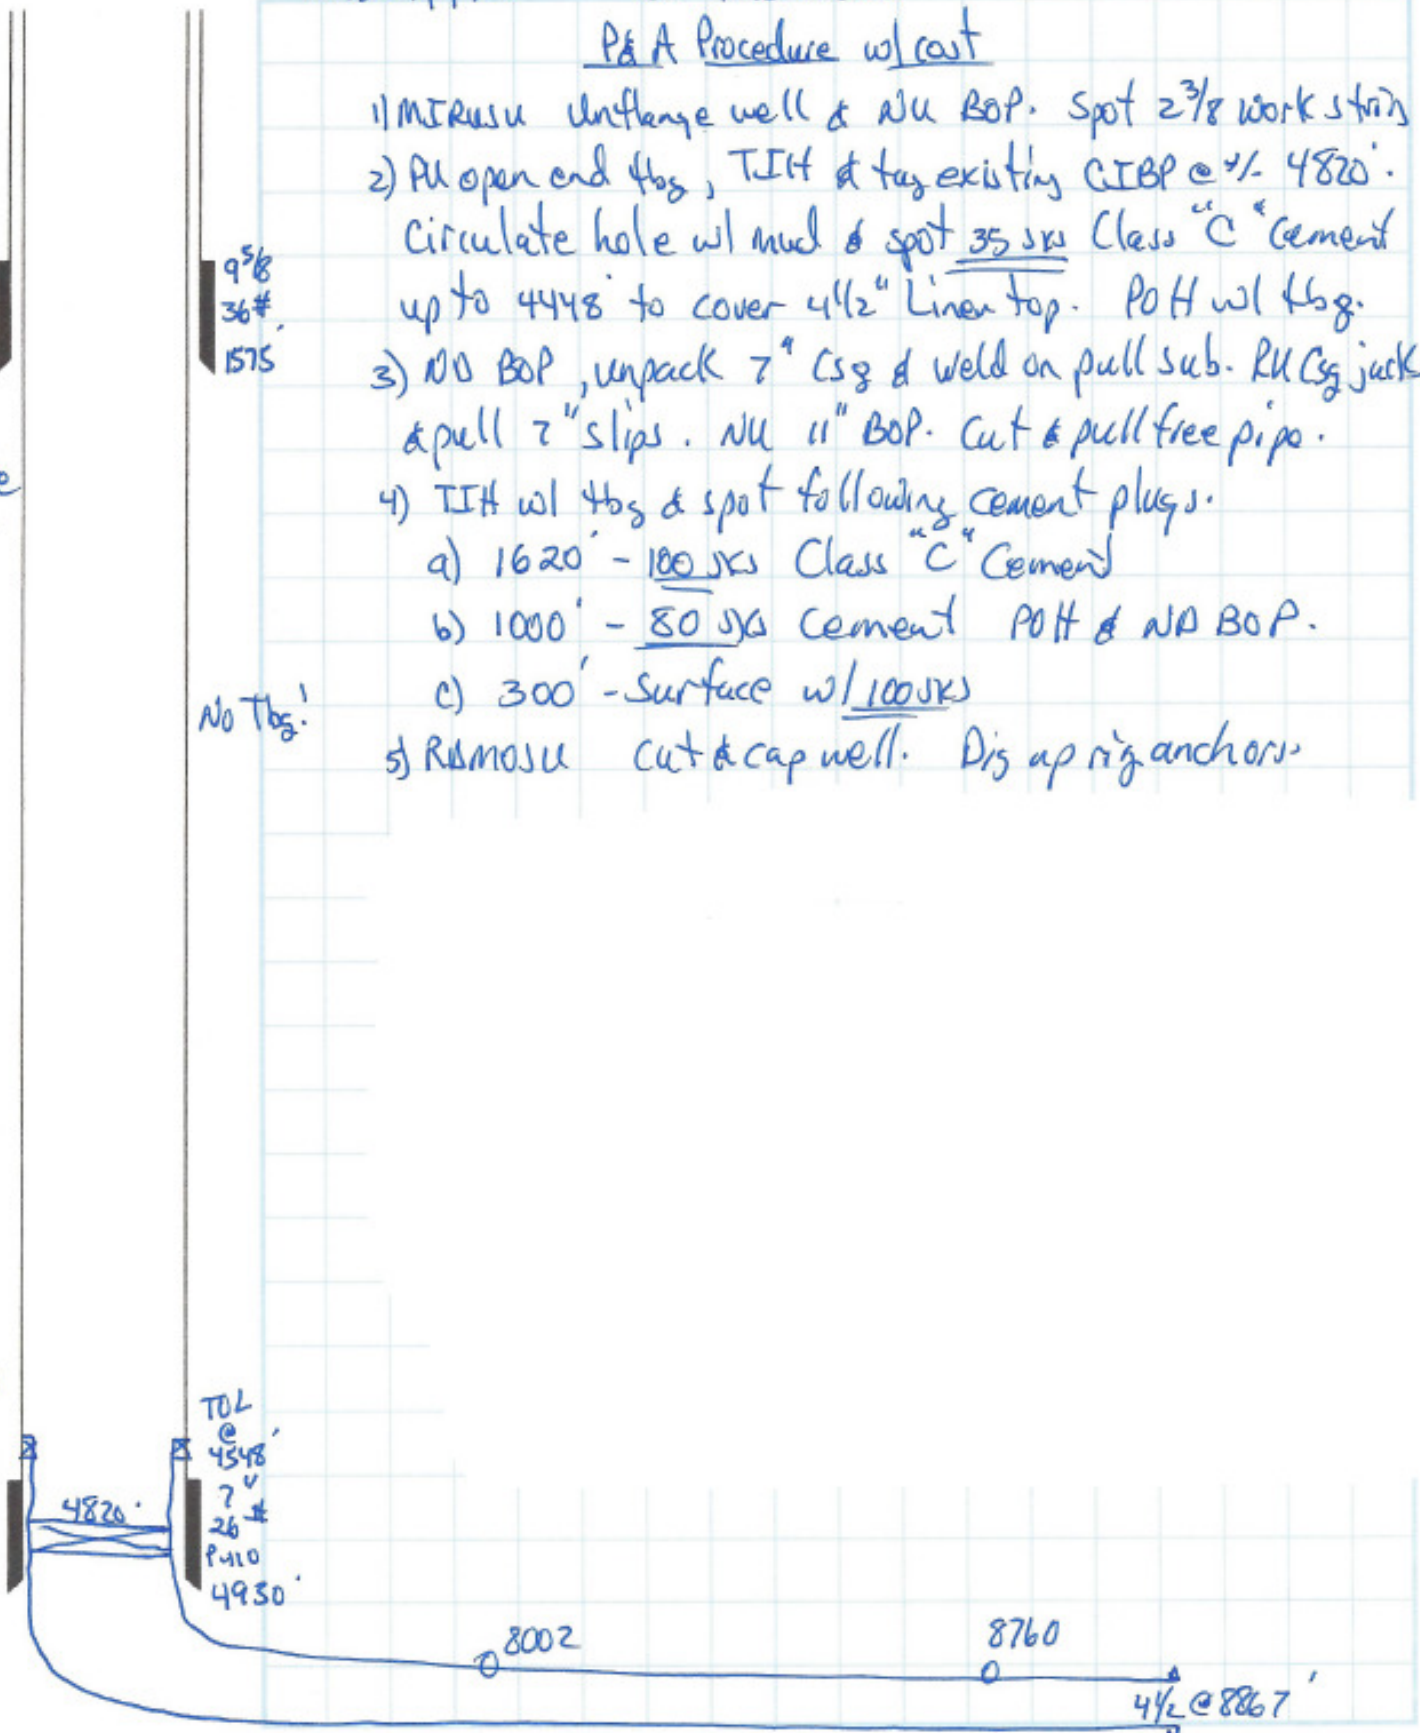 P&A Procedure w/ cost
1) MIRUSU Unflange well & NU BOP. Spot 2 3/8 work string
2) PU open end tbg, TIH & tag existing CIBP @ +/- 4820'.
Circulate hole w/ mud & spot 35 sks Class "C" Cement
up to 4448' to cover 4 1/2" Liner top. POH w/ tbg.
3) ND BOP, unpack 7" Csg & weld on pull sub. RU Csg jack
& pull 7" slips. NU 11" BOP. Cut & pull free pipe.
4) TIH w/ tbg & spot following cement plugs.
a) 1620' - 100 sks Class "C" Cement
b) 1000' - 80 sks Cement POH & ND BOP.
c) 300' - Surface w/ 100 sks
5) RDMOSU Cut & cap well. Dig up rig anchors.
9 5/8
36#
1575'
No Tbg!
TOL
@
4548'
7"
26#
P-110
4930'
4820'
8002
8760
4 1/2 @ 8867'